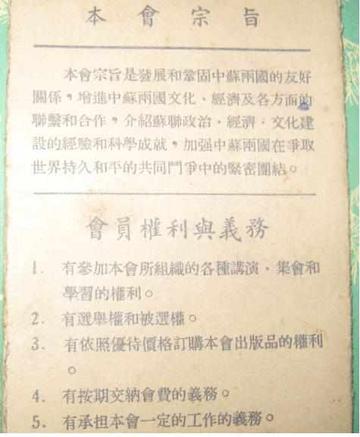 本會宗旨
本會宗旨是發展和鞏固中蘇兩國的友好
關係，增進中蘇兩國文化、經濟及各方面的
聯繫和合作，介紹蘇聯政治、經濟、文化建
設的經驗和科學成就，加强中蘇兩國在爭取
世界持久和平的共同鬥爭中的緊密團結。
會員權利與義務
1. 有參加本會所組織的各種講演、集會和
學習的權利。
2. 有選舉權和被選權。
3. 有依照優待價格訂購本會出版品的權利
。
4. 有按期交納會費的義務。
5. 有承担本會一定的工作的義務。